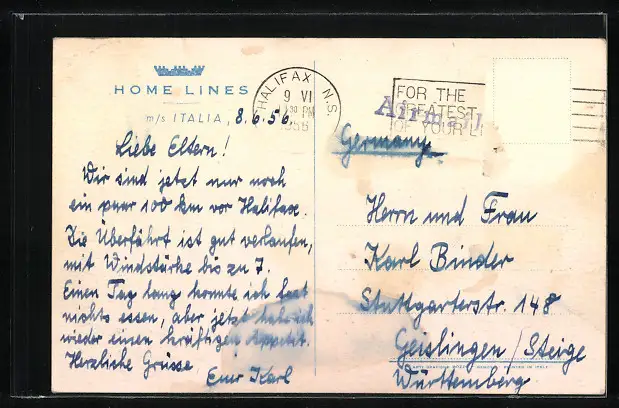 HOME LINES
m/s ITALIA, 8.6.56.
Liebe Eltern!
Wir sind jetzt nur noch
ein paar 100 km vor Halifax.
Die Überfahrt ist gut verlaufen,
mit Windstärke bis zu 7.
Einen Tag lang konnte ich fast
nichts essen, aber jetzt habe ich
wieder einen kräftigen Appetit.
Herzliche Grüsse
Euer Karl
HALIFAX N.S.
9 VI
PM
1956
FOR THE
GREATEST
OF YOUR LI
Airmail
Germany
Herrn und Frau
Karl Binder
Stuttgarterstr. 148
Geislingen / Steige
Württemberg